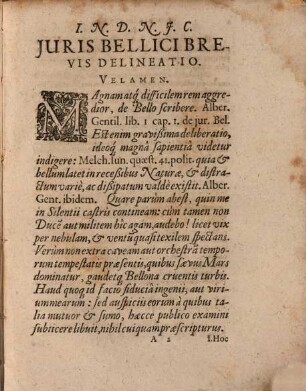 I. N. D. N. J. C.
JURIS BELLICI BRE-
VIS DELINEATIO.
VELAMEN.
MAgnam atq́; difficilem rem aggre-
dior, de Bello scribere. Alber.
Gentil. lib. 1 cap. 1. de jur. Bel.
Est enim gravissima deliberatio,
ideoq́; magnâ sapientiâ videtur
indigere: Melch. Iun. quæst. 41. polit. quia &
bellum latet in recessibus Naturæ, & distra-
ctum variè, ac dissipatum valdè existit. Alber.
Gent. ibidem. Quare parùm abest, quin me
in Silentii castris contineam: cùm tamen non
Ducẽ aut militem hîc agam, audebo! licet vix
per nebulam, & ventũ quasi texilem spectans.
Verùm non extra caveam aut orchestrã tempo-
rum tempestatis præsentis, quibus sævus Mars
dominatur, gaudetq́; Bellona cruentis turbis.
Haud quoq́; id facio fiduciâ ingenii, aut viri-
um mearum: sed auspiciis eorum à quibus ta-
lia mutuor & sumo, hæcce publico examini
subiicere libuit, nihil cuiquam præscripturus.
A 2 I. Hoc